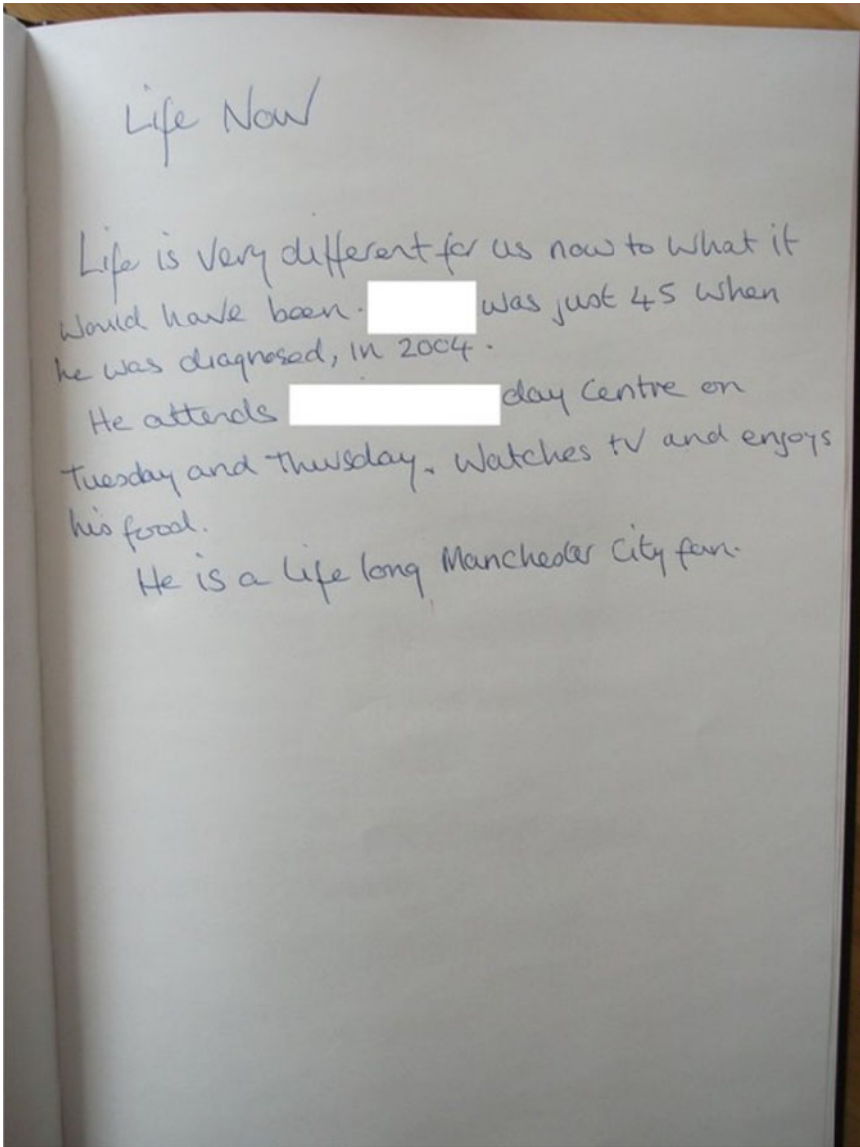 Life Now
Life is very different for us now to what it
would have been. was just 45 when
he was diagnosed, in 2004.
He attends day centre on
Tuesday and Thursday. Watches tv and enjoys
his food.
He is a life long Manchester City fan.